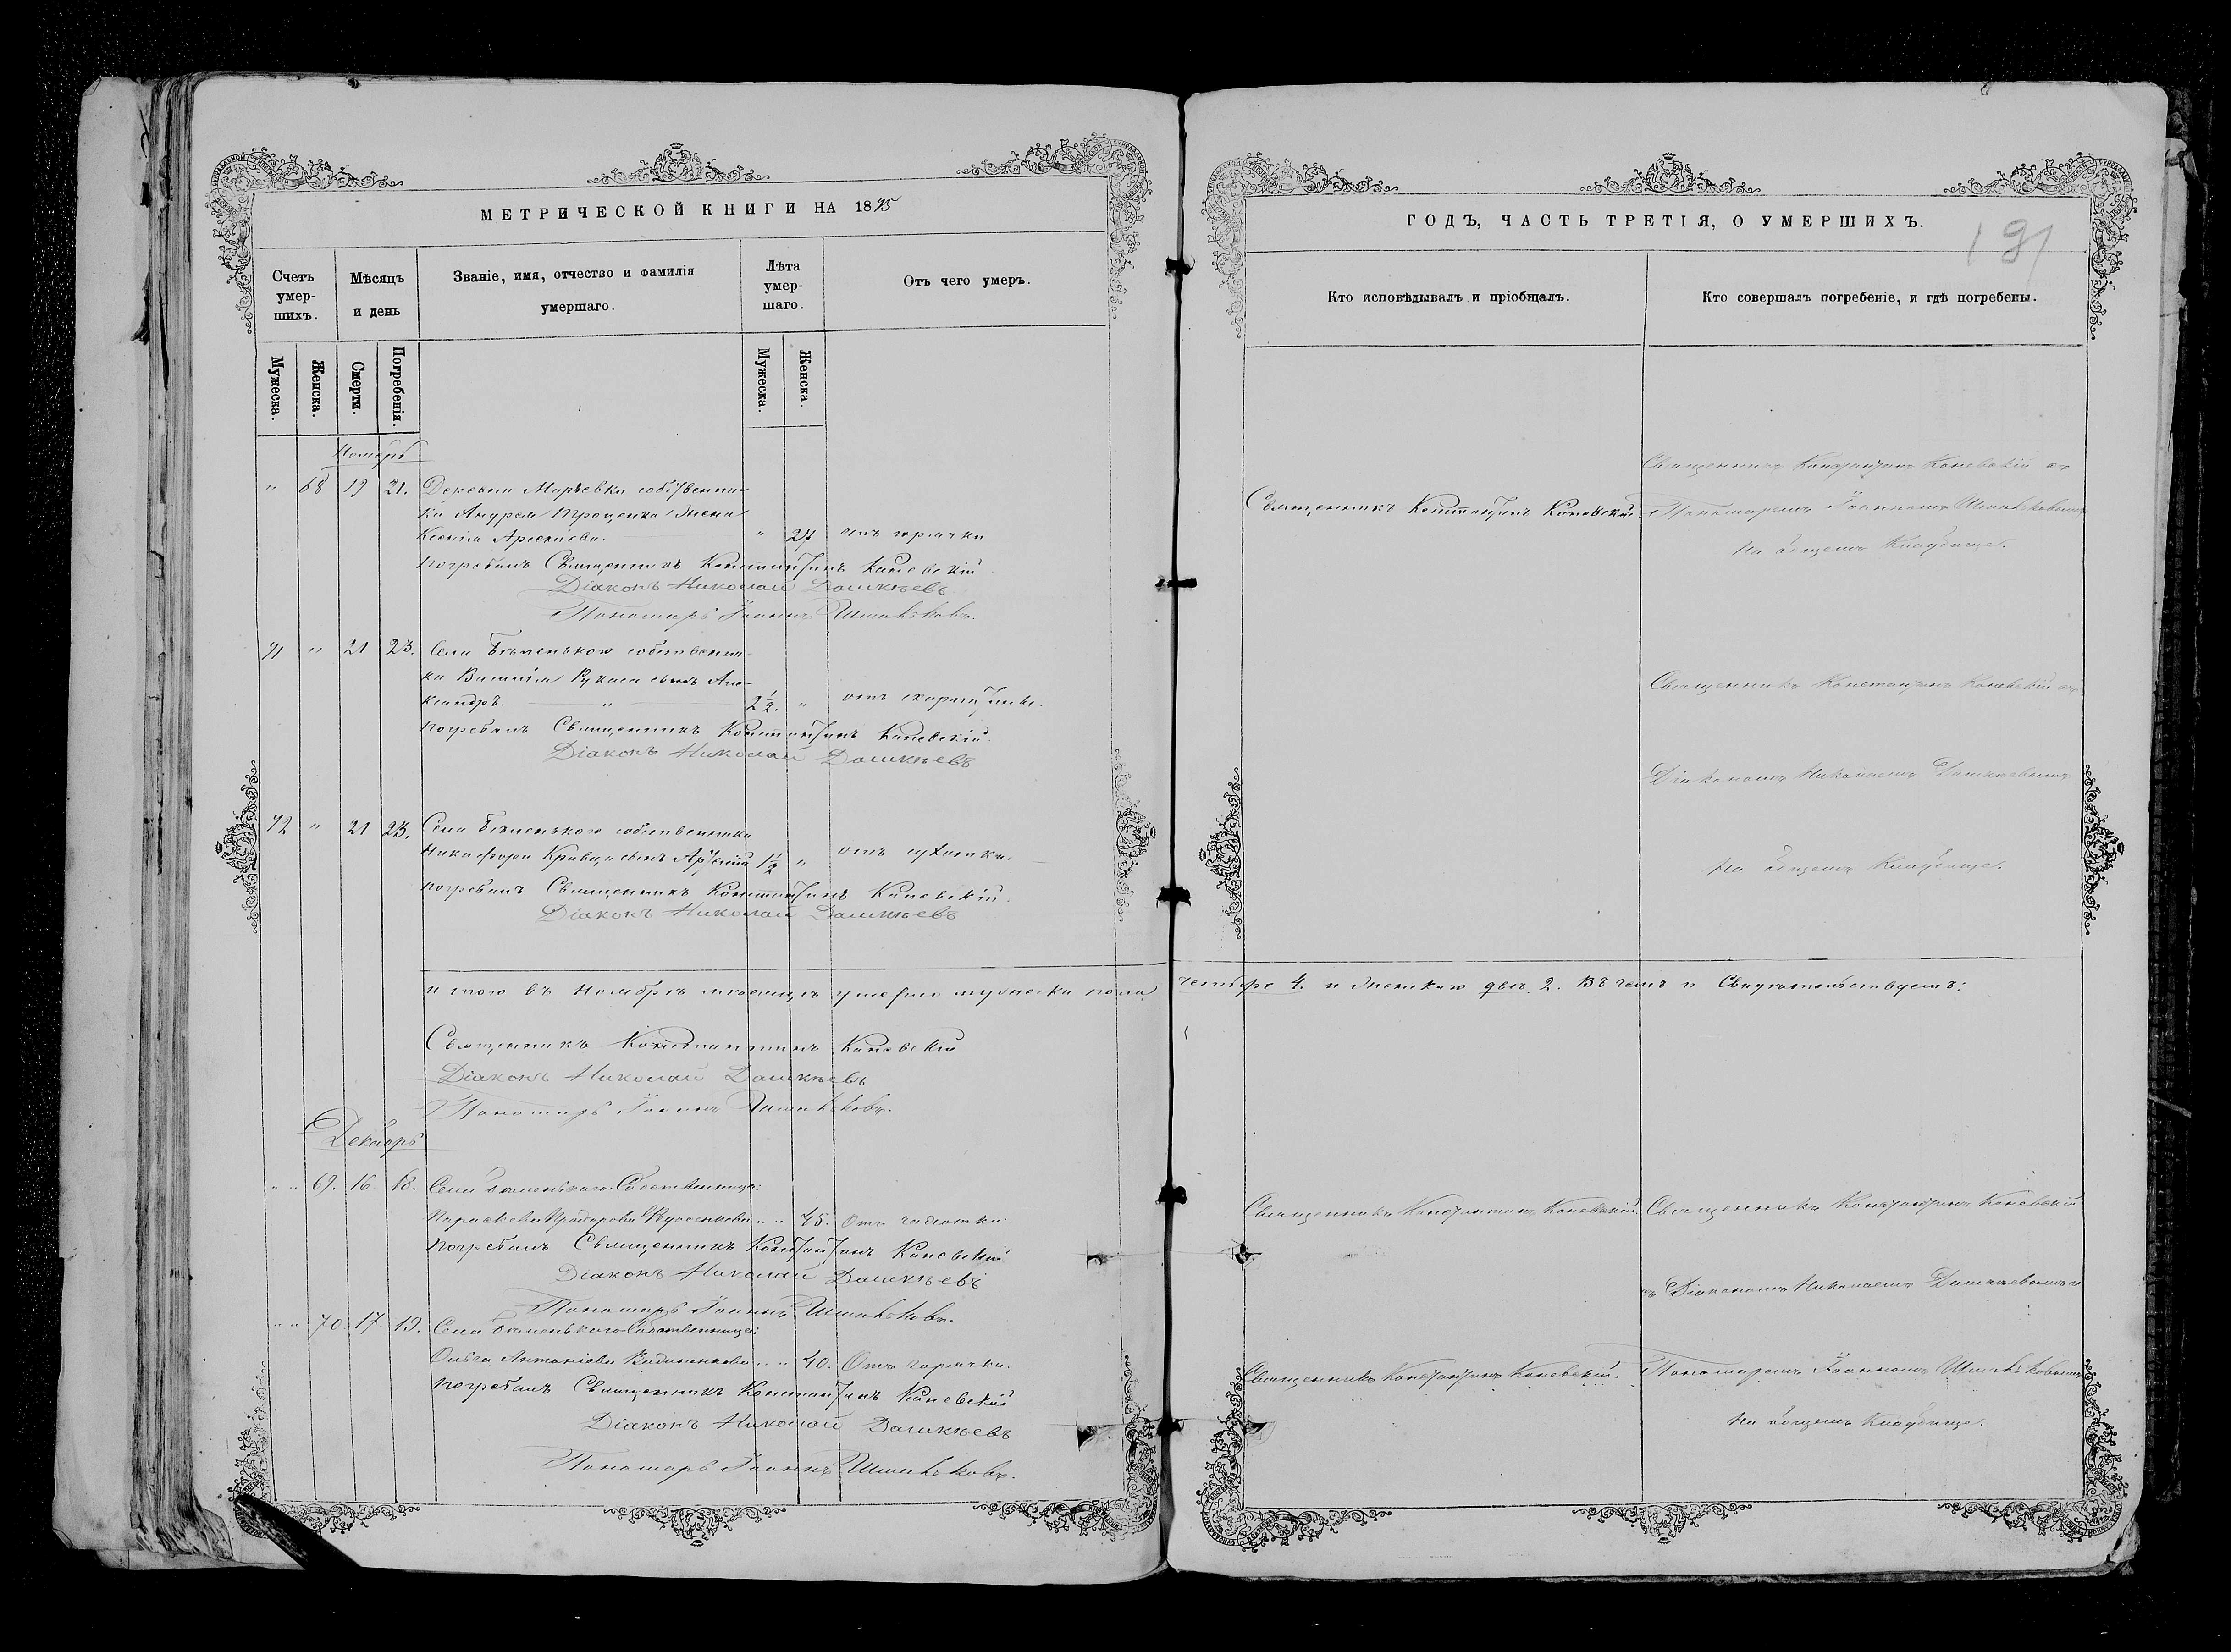 МЕТРИЧЕСКОЙ КНИГИ НА 1875
Счетъ умер-шихъ.
Мѣсяцъ и день
Званіе, имя, отчество и фамилія умершаго.
Лѣта умер-шаго.
Отъ чего умеръ.
Мужеска.
Женска.
Смерти.
Погребенія.
Мужеска.
Женска.
Ноябрь
" 68 19 21. Деревни Маръевки собственни-
ка Андрея Троценка жена
Ксенія " 27 отъ горячки
погребалъ Священникъ Константинъ Каневскій
Діаконъ Николай Дашкѣевъ
Пономарь Іоаннъ
71 " 21 23. Села собственни-
ка Василія сынъ Але-
ксандръ. " 2½. " отъ скарлатины.
погребалъ Священникъ Константинъ Каневскій.
Діаконъ Николай Дашкѣевъ
72 " 21 23. Села собственника
Никифора Кравца сынъ 1½ " отъ
погребалъ Священникъ Константинъ Каневскій.
Діаконъ Николай Дашкѣевъ
итого въ Ноябрѣ мѣсяцѣ умерло мужеска пола
Священникъ Константинъ Каневскій
Діаконъ Николай Дашкѣевъ
Пономарь Іоаннъ
Декабрь
" " 69. 16 18. Села Собственница:
Параскева " " 45. Отъ чахотки
погребалъ Священникъ Константинъ Каневскій
Діаконъ Николай Дашкѣевъ
Пономарь Іоаннъ
" " 70. 17. 19. Села
Ольга Антоніева " " 40. Отъ горячки.
погребалъ Священникъ Константинъ Каневскій
Діаконъ Николай Дашкѣевъ
Пономарь Іоаннъ
ГОДЪ, ЧАСТЬ ТРЕТІЯ, О УМЕРШИХЪ.
191
Кто исповѣдывалъ и пріобщалъ.
Кто совершалъ погребеніе, и гдѣ погребены.
Священникъ Константинъ Каневскій съ
Священникъ Константинъ Каневскій.
Пономаремъ Іоанномъ
На общемъ Кладбище.
Священникъ Константинъ Каневскій съ
Діакономъ Николаемъ Дашкѣевымъ
На общемъ Кладбище.
4. и женска 2. Въ чемъ и Свидѣтельствуемъ:
Священникъ Константинъ Каневскій.
Священникъ Константинъ Каневскій
съ Діакономъ Николаемъ Дашкѣевымъ и
Священникъ Константинъ Каневскій.
Пономаремъ Іоанномъ
На общемъ Кладбище.